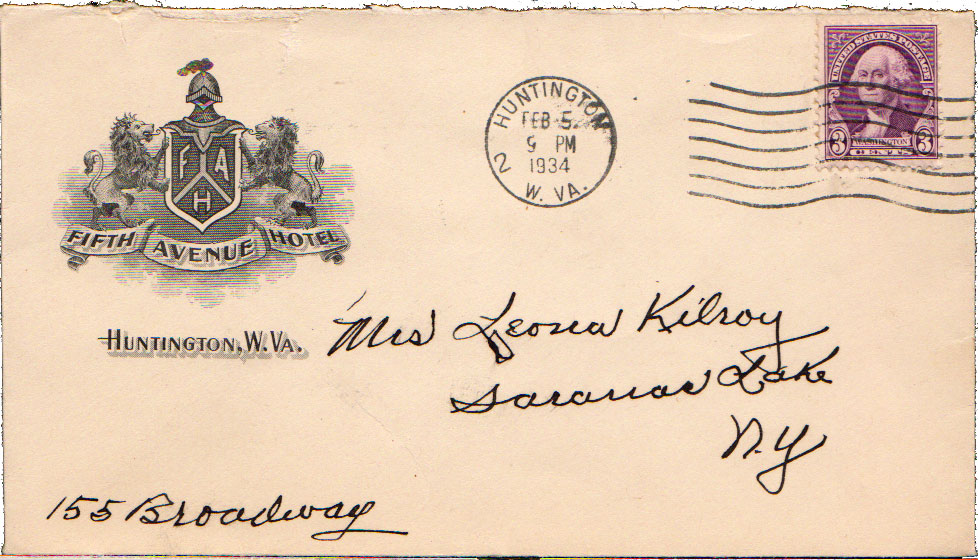 F A
H
FIFTH AVENUE HOTEL
HUNTINGTON, W. VA.
HUNTINGTON
FEB 5
9 PM
1934
2 W. VA.
UNITED STATES POSTAGE
3 WASHINGTON 3
Mrs Leona Kilroy
Saranac Lake
N.Y
155 Broadway